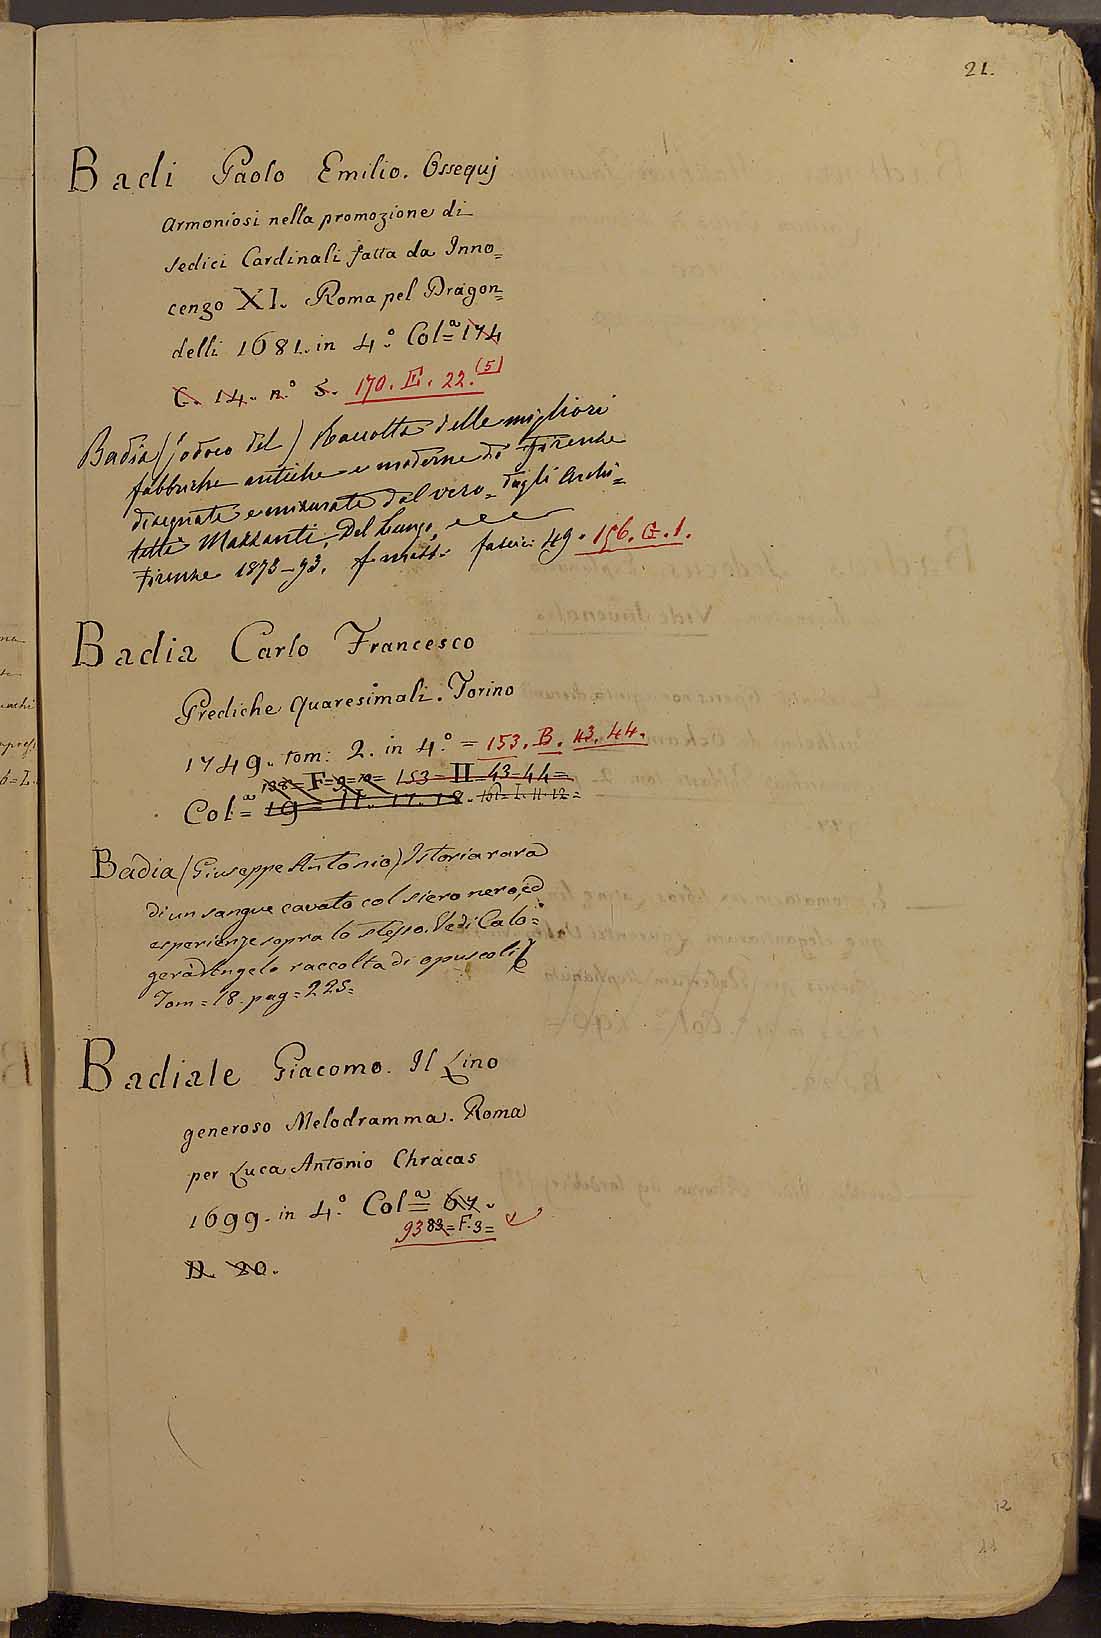 21.
Badi Paolo Emilio. Ossequj
armoniosi nella promozione di
sedici Cardinali fatta da Inno=
cenzo XI. Roma pel Dragon=
delli 1681. in 4.° Col=a 174
C. 14. n.° 5. 170. E. 22. (5)
Badia (Jodoco del) Raccolta delle migliori
fabbriche antiche e moderne di Firenze
disegnate e misurate dal vero dagli Archi=
tetti Mazzanti, Del Lungo,
Firenze 1873-93. fascic: 49. 156. G. 1.
Badia Carlo Francesco
Prediche Quaresimali. Torino
1749. tom: 2. in 4.° = 153. B. 43. 44.
153=II=43=44=
Col=a 19= II. 17. 18.
Badia (Giuseppe Antonio) Istoria rara
di un sangue cavato col siero nero, ed
esperienze sopra lo stesso. Vedi Calo=
gerà Angelo raccolta di opuscoli
Tom=18. pag=225=
Badiale Giacomo. Il Lino
generoso Melodramma. Roma
per Luca Antonio Chracas
1699. in 4.° Col=a 67.
93 83=F.3=
D. 20.
12